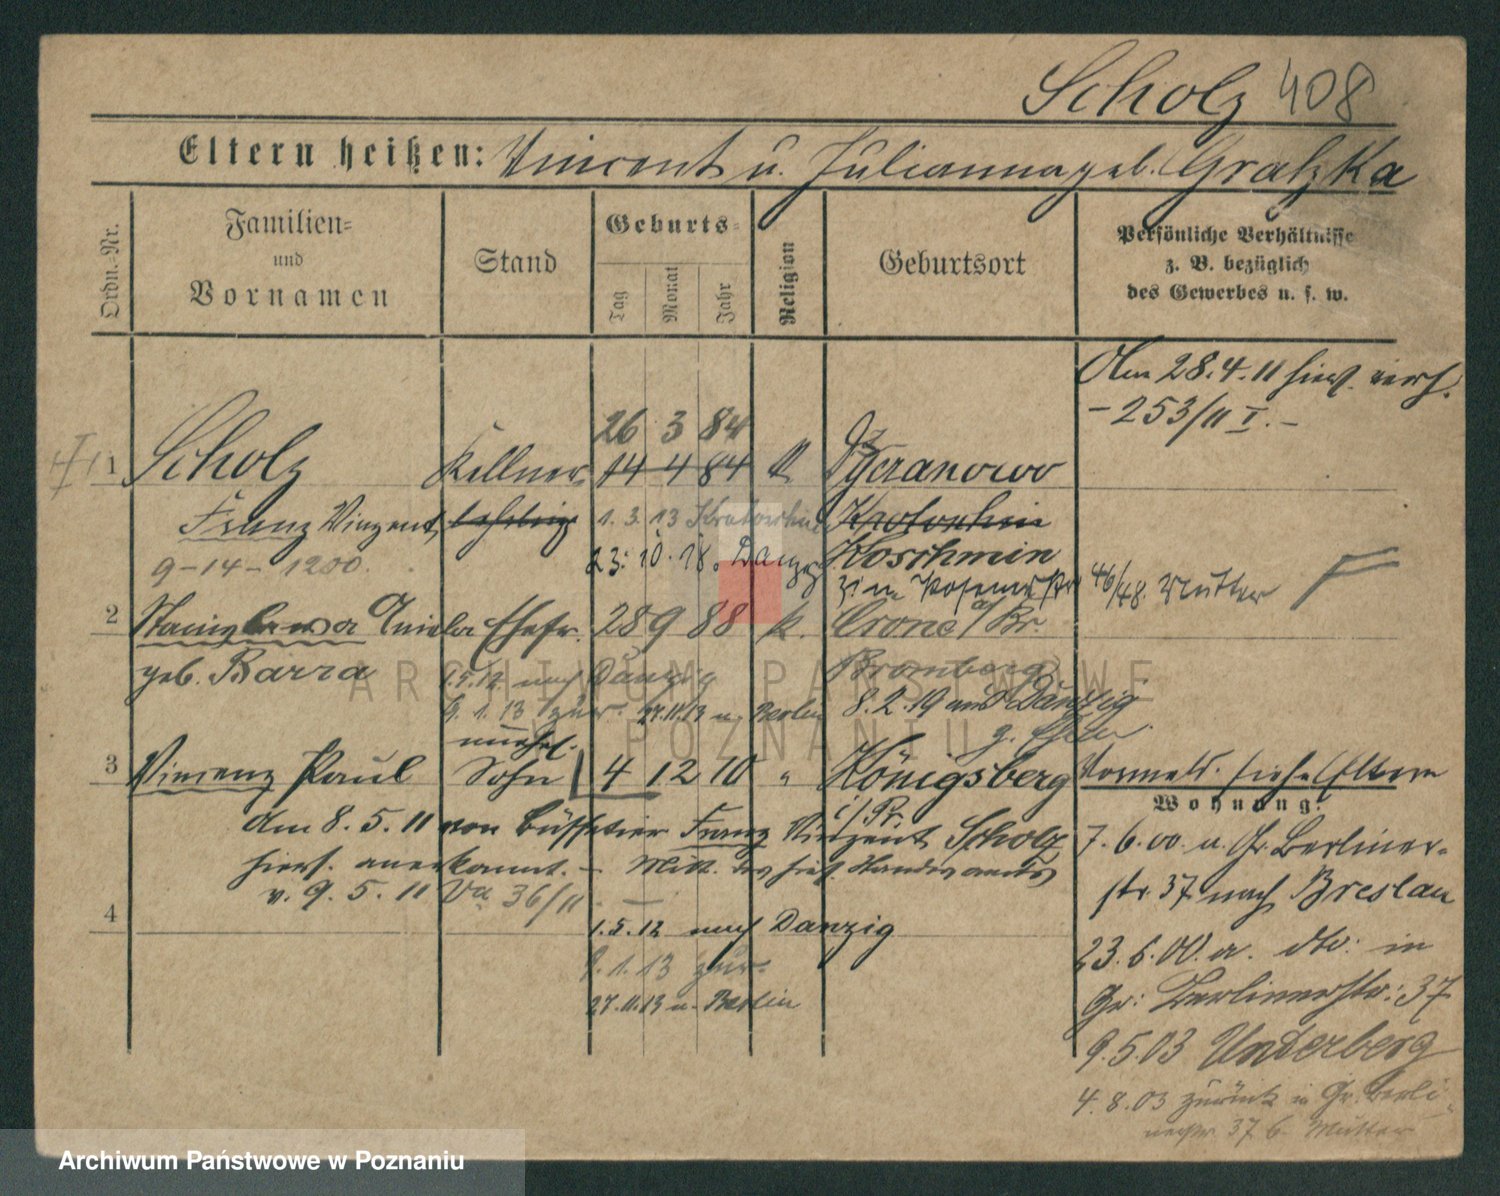 Scholz 408
Eltern heißen: Vincent u. Julianna geb. Gratzka
Ordn.-Nr.
Familien-
und
Vornamen
Stand
Geburts-
Tag
Monat
Jahr
Religion
Geburtsort
Persönliche Verhältnisse
z. B. bezüglich
des Gewerbes u. s. w.
Am 28.4.11 hier verh.
- 253/11 I. -
26 3 84
1 Scholz Kellner 14 4 84 k
Franz Vinzent Lehrling 1.3.13 Krotoschin Krotoschin
23.10.18. Danzig Koschmin
9-14-1200.
46/48 Mutter
2 Stanislawa Aniela Ehefr. 28 9 88 k. Crone a/Br.
geb. Barra 1.5.12 nach Danzig Bromberg.
9.1.13 zur. 27.11.13 n. Berlin 8.2.19 aus Danzig
unehel.
3 Vincenz Paul Sohn 4 12 10 " Königsberg
i/Pr.
Vormds. siehe Eltern
Wohnung:
am 8.5.11 von Büffetier Franz Vinzent Scholz
hiers. anerkannt. - Mitt. des hies. Standesamts
v. 9.5.11 Va 36/11 -
4
1.5.12 nach Danzig
9.1.13 zur.
27.11.13 n. Berlin
7.6.00 a. Gr. Berliner-
str. 37 nach Breslau
23.6.00. a. dto: in
Gr: Berlinerstr: 37
9.5.03 Underberg
4.8.03 zurück in Gr. Berli-
nerstr. 37 b. Mutter
ARCHIWUM PAŃSTWOWE
W POZNANIU
Archiwum Państwowe w Poznaniu